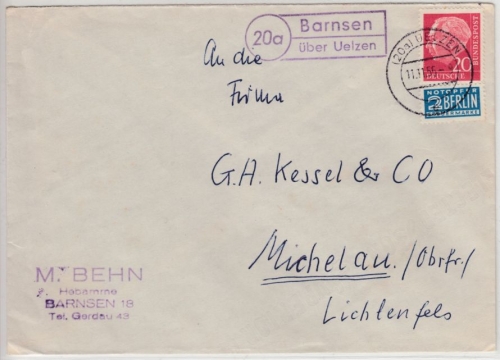 20a
Barnsen
über Uelzen
(20a) UELZEN
11.11.55
20
DEUTSCHE
BUNDESPOST
NOTOPFER
2 BERLIN
STEUERMARKE
An die
Firma
G.A. Kessel & CO
Michelau./Obrfr./
Lichtenfels
M. BEHN
Hebamme
BARNSEN 18
Tel. Gerdau 43